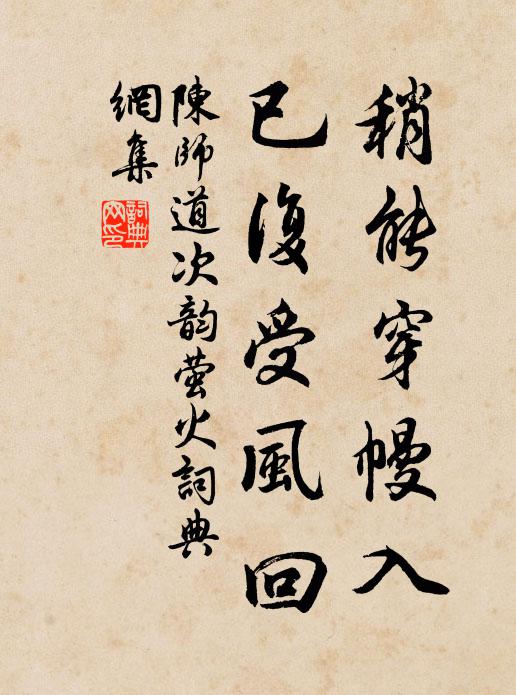 稍能穿幔入
已復受風回
陳師道次韵萤火詞典
網集
詞典
网印